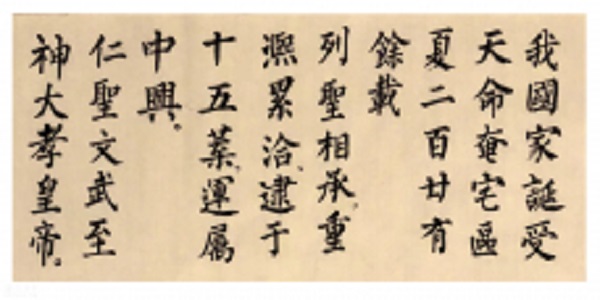 我國家誕受
天命奄宅區
夏二百廿有
餘載
列聖相承、重
熙累洽、逮于
十五葉、運屬
中興。
仁聖文武至
神大孝皇帝。